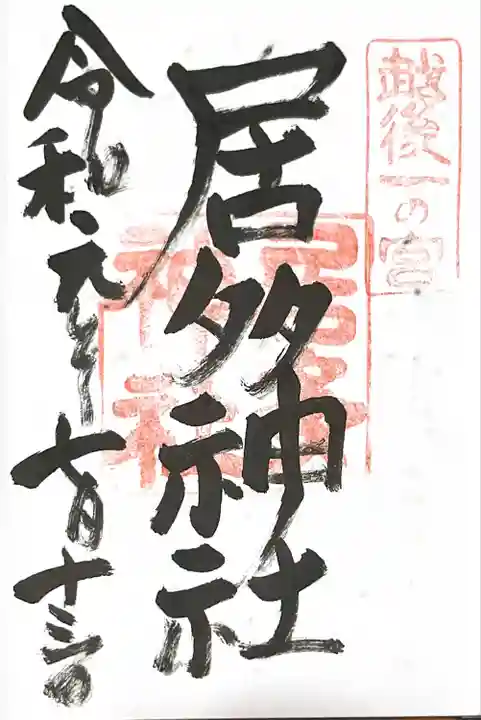 越後一の宮
居多神社
居多神社
令和元年七月十三日